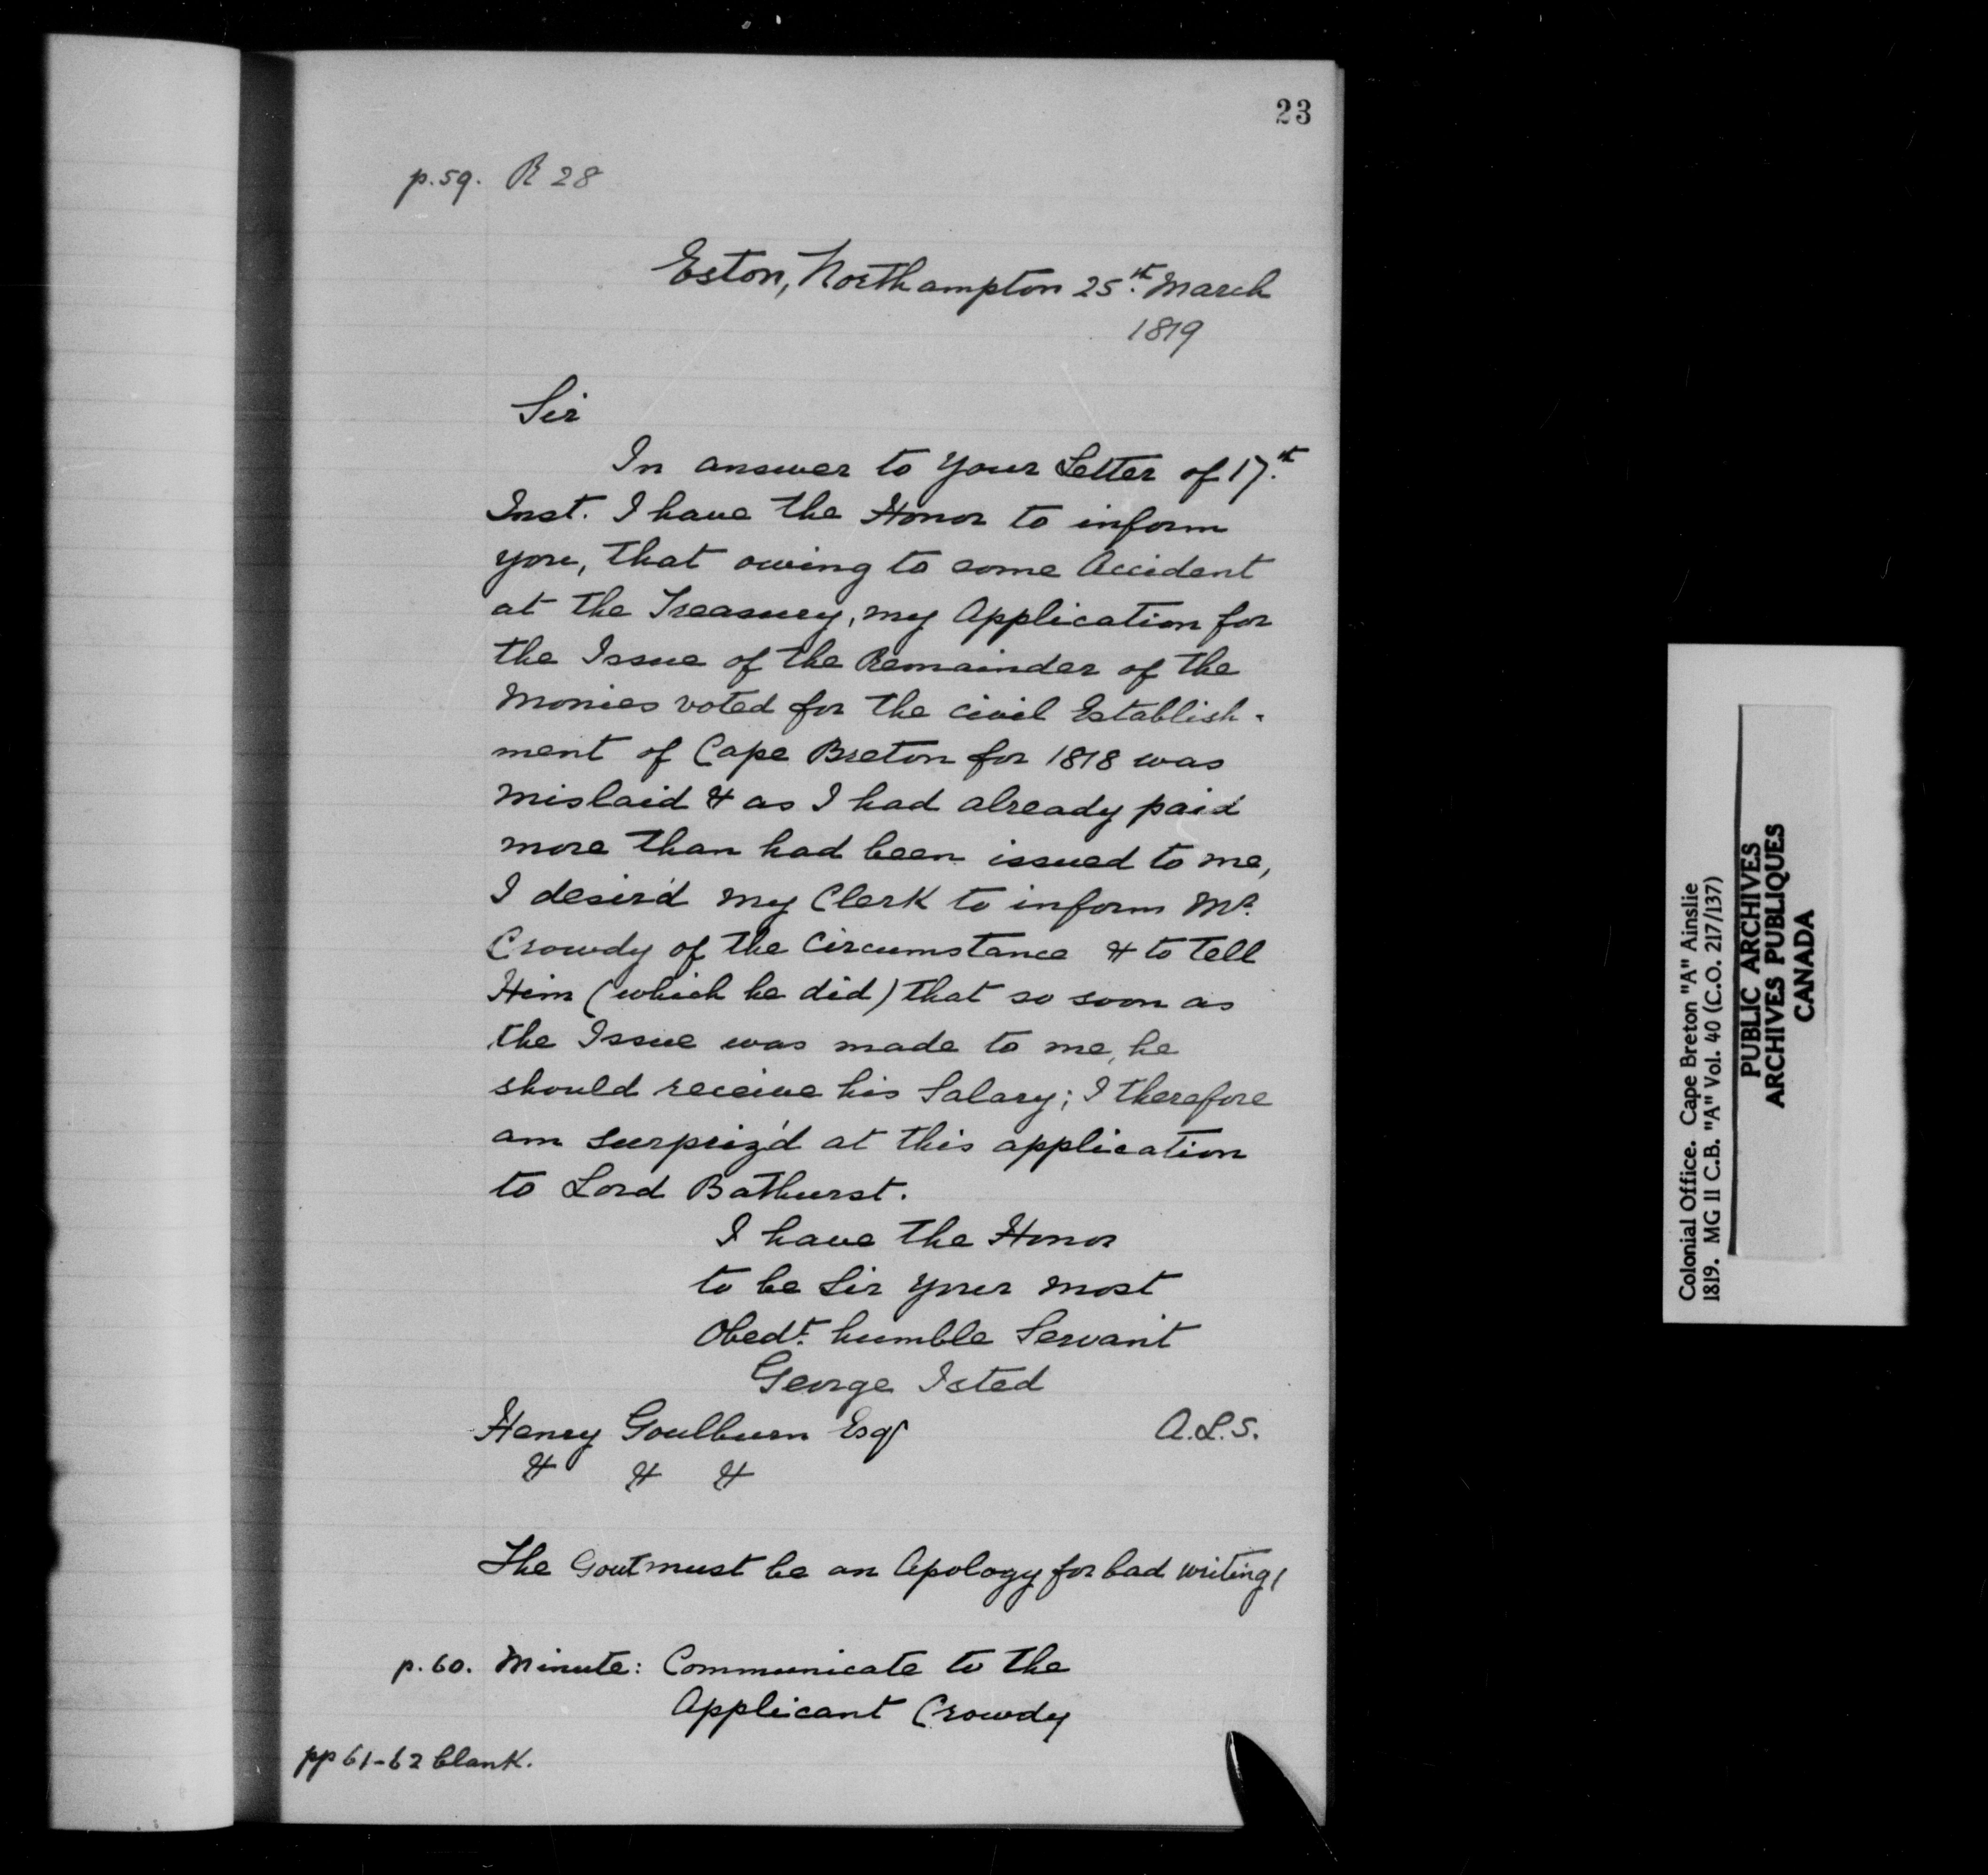 23
p.59. R 28
Eston, Northampton 25th. March
1819
Sir
In answer to your Letter of 17th.
Inst. I have the Honor to inform
you, that owing to some Accident
at the Treasury, my Application for
the Issue of the Remainder of the
Monies voted for the civil Establish-
ment of Cape Breton for 1818 was
mislaid & as I had already paid
more than had been issued to me,
I desir'd my Clerk to inform Mr.
Crowdy of the Circumstance & to tell
Him (which he did) that so soon as
the Issue was made to me, he
should receive his Salary; I therefore
am surpriz'd at this application
to Lord Bathurst.
I have the Honor
to be Sir your most
Obedt. humble Servant
George Isted
Henry Goulburn Esqr A.L.S.
& & &
The Gout must be an Apology for bad writing/
p.60. Minute: Communicate to the
Applicant Crowdy
pp 61-62 blank.
Colonial Office. Cape Breton "A" Ainslie
1819. MG 11 C.B. "A" Vol. 40 (C.O. 217/137)
PUBLIC ARCHIVES
ARCHIVES PUBLIQUES
CANADA